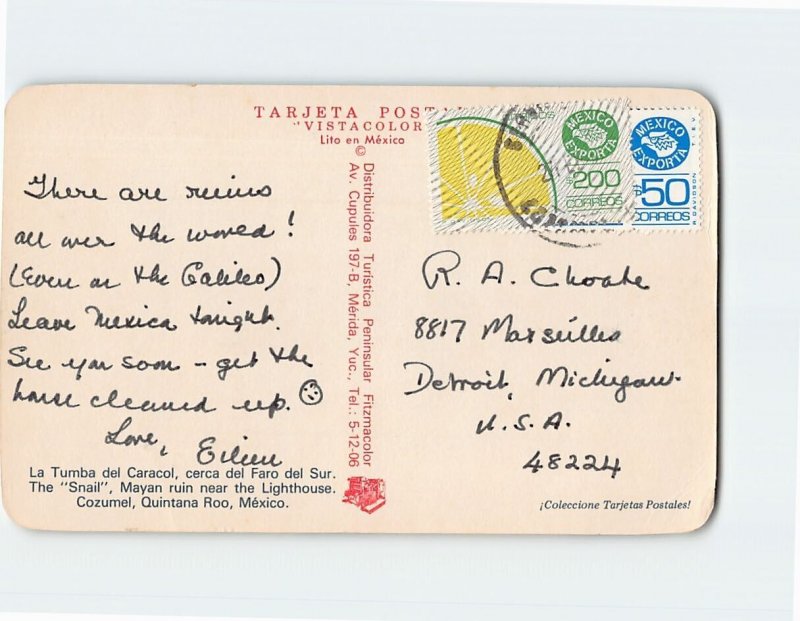 TARJETA POSTAL
"VISTACOLOR
Lito en México
©
Distribuidora Turística Peninsular Fitzmacolor
Av. Cupules 197-B, Mérida, Yuc., Tel.: 5-12-06
There are ruins
all over the world!
(Even on the Galileo)
Leave Mexico tonight.
See you soon - get the
house cleaned up. ☺
Love, Eileen
La Tumba del Caracol, cerca del Faro del Sur.
The "Snail", Mayan ruin near the Lighthouse.
Cozumel, Quintana Roo, México.
MEXICO
EXPORTA
$200
CORREOS
MEXICO
EXPORTA
$50
CORREOS
R. DAVIDSON T.I.E.V.
R. A. Choate
8817 Marseilles
Detroit, Michigan
U.S.A.
48224
¡Coleccione Tarjetas Postales!